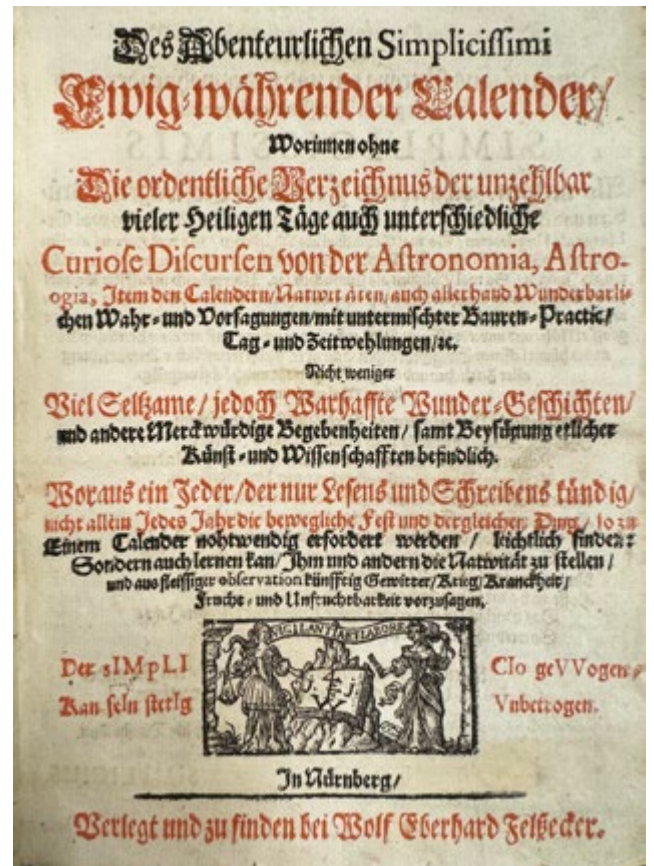 Des Abenteurlichen Simplicissimi
Ewig-währender Calender/
Worinnen ohne
Die ordentliche Verzeichnus der unzehlbar
vieler Heiligen Täge auch unterschiedliche
Curiose Discursen von der Astronomia, Astro-
ogia, Item den Calendern/Nativitäten/auch allerhand Wunderbarli-
chen Wahr- und Vorsagungen/mit untermischter Bauren-Practic/
Tag- und Zeitwehlungen/ꝛc.
Nicht weniger
Viel Seltzame/ jedoch Warhaffte Wunder-Geschichten/
und andere Merckwürdige Begebenheiten/ samt Beyfügung etlicher
Künst- und Wissenschafften befindlich.
Woraus ein Jeder/der nur Lesens und Schreibens kündig/
nicht allein Jedes Jahr die bewegliche Fest und dergleichen Ding/ so zu
Einem Calender nohtwendig erfordert werden/ leichtlich finden:
Sondern auch lernen kan/Ihm und andern die Nativität zu stellen/
und aus fleissiger observation künfftig Gewitter/Krieg/Kranckheit/
Frucht- und Unfruchtbarkeit vorzusagen.
VIGILANT
Der sIMpLI CIo geVVogen,
Kan seIn sterIg Vnbetrogen.
In Nürnberg/
Verlegt und zu finden bei Wolf Eberhard Felßecker.